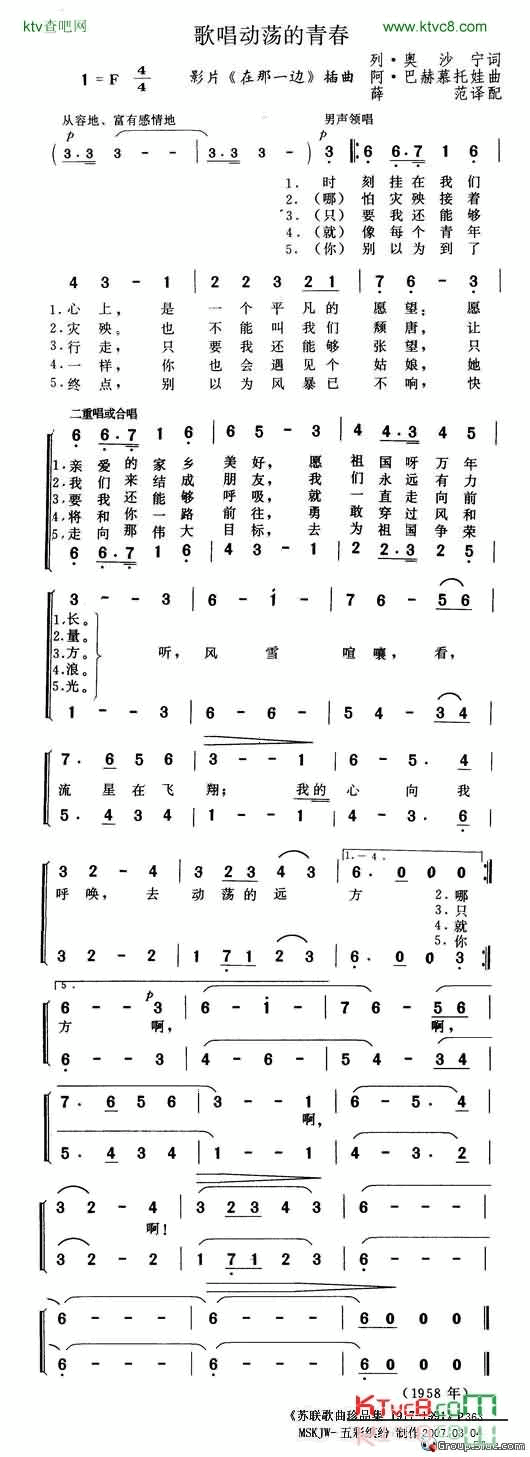 ktv查吧网
www.ktvc8.com
歌唱动荡的青春
1=F 4/4
影片《在那一边》插曲
列·奥沙宁词
阿·巴赫慕托娃曲
薛范译配
从容地、富有感情地
男声领唱
p
p
( 3.3 3 - - | 3.3 3 - - ) 3 |: 6 6.7 1 6 |
1. 时刻挂在我们
2.(哪)怕灾殃接着
3.(只)要我还能够
4.(就)像每个青年
5.(你)别以为到了
4 3 - 1 | 2 2 3 2 1 | 7 6 - 3 |
1.心上，是一个平凡的愿望；愿
2.灾殃。也不能叫我们颓唐，让
3.行走，只要我还能够张望，只
4.一样，你也会遇见个姑娘，她
5.终点，别以为风暴已不响，快
二重唱或合唱
6 6.7 1 6 | 6 5 - 3 | 4 4.3 4 5 |
1.亲爱的家乡美好，愿祖国呀万年
2.我们来结成朋友，我们永远有力
3.要我还能够呼吸，就一直走向前
4.将和你一路前往，勇敢穿过风和
5.走向那伟大目标，去为祖国争荣
6 6.7 1 6 | 4 3 - 1 | 2 2.3 2 5 |
3 - - 3 | 6 - 1 - | 7 6 - 5 6 |
1.长。
2.量。
3.方。
4.浪。
5.光。
听，风雪喧嚷，看，
1 - - 3 | 6 - 6 - | 5 4 - 3 4 |
7. 6 5 5 6 | 3 - - 1 | 6 - 5. 4 |
流星在飞翔；我的心向我
5. 4 3 4 | 1 - - 1 | 4 - 3. 6 |
1.-4.
3 2 - 4 | 3 3 2 3 4 3 | 6. 0 0 0 :|
呼唤，去动荡的远方
2.哪
3.只
4.就
5.你
3 2 - 2 | 1 1 7 1 2 3 | 6. 0 0 0 :|
5.
p
6 - - 3 | 6 - 1 - | 7 6 - 5 6 |
方啊，啊，
6 - - 3 | 4 - 4 6 - | 5 4 - 3 4 |
7. 6 5 5 6 | 3 - - 1 | 6 - 5. 4 |
啊，
5. 4 3 4 | 1 - - 1 | 4 - 3. 2 |
3 2 - 4 | 3 3 2 3 4 3 | 6 - - - |
啊！
3 2 - 2 | 1 1 7 1 2 3 | 6 - - - |
6 - - - | 6 - - - | 6 0 0 0 ‖
6 - - - | 6 - - - | 6 0 0 0 ‖
（1958年）
KTvc8.com
《苏联歌曲珍品集 1917-1991》P363
MSKJW- 五彩缤纷 制作2007.03.04
Group.51uc.com